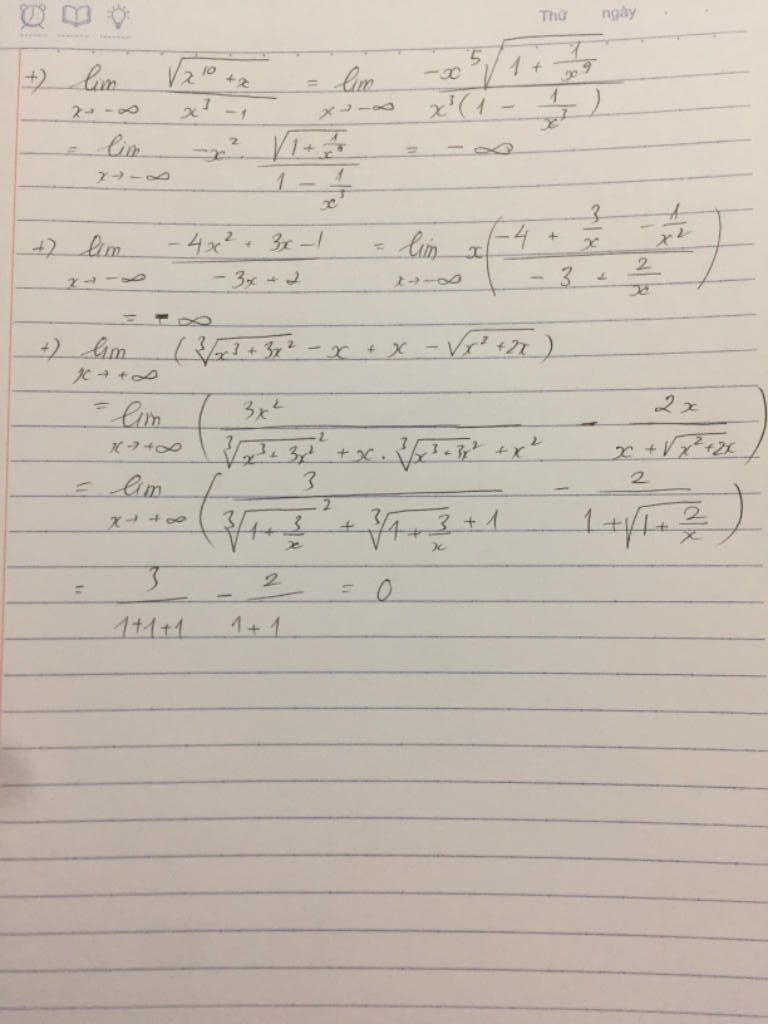 Thứ ngày
+) lim x→-∞ √(x¹⁰ + x) / (x³ - 1) = lim x→-∞ -x⁵√(1 + 1/x⁹) / x³(1 - 1/x³)
= lim x→-∞ -x² · √(1 + 1/x⁹) / (1 - 1/x³) = -∞
+) lim x→-∞ (-4x² + 3x - 1) / (-3x + 2) = lim x→-∞ x((-4 + 3/x - 1/x²) / (-3 + 2/x))
= -∞
+) lim x→+∞ (∛(x³ + 3x²) - x + x - √(x² + 2x))
= lim x→+∞ (3x² / (∛(x³ + 3x²)² + x · ∛(x³ + 3x²) + x²) - 2x / (x + √(x² + 2x)))
= lim x→+∞ (3 / (∛(1 + 3/x)² + ∛(1 + 3/x) + 1) - 2 / (1 + √(1 + 2/x)))
= 3 / (1+1+1) - 2 / (1+1) = 0